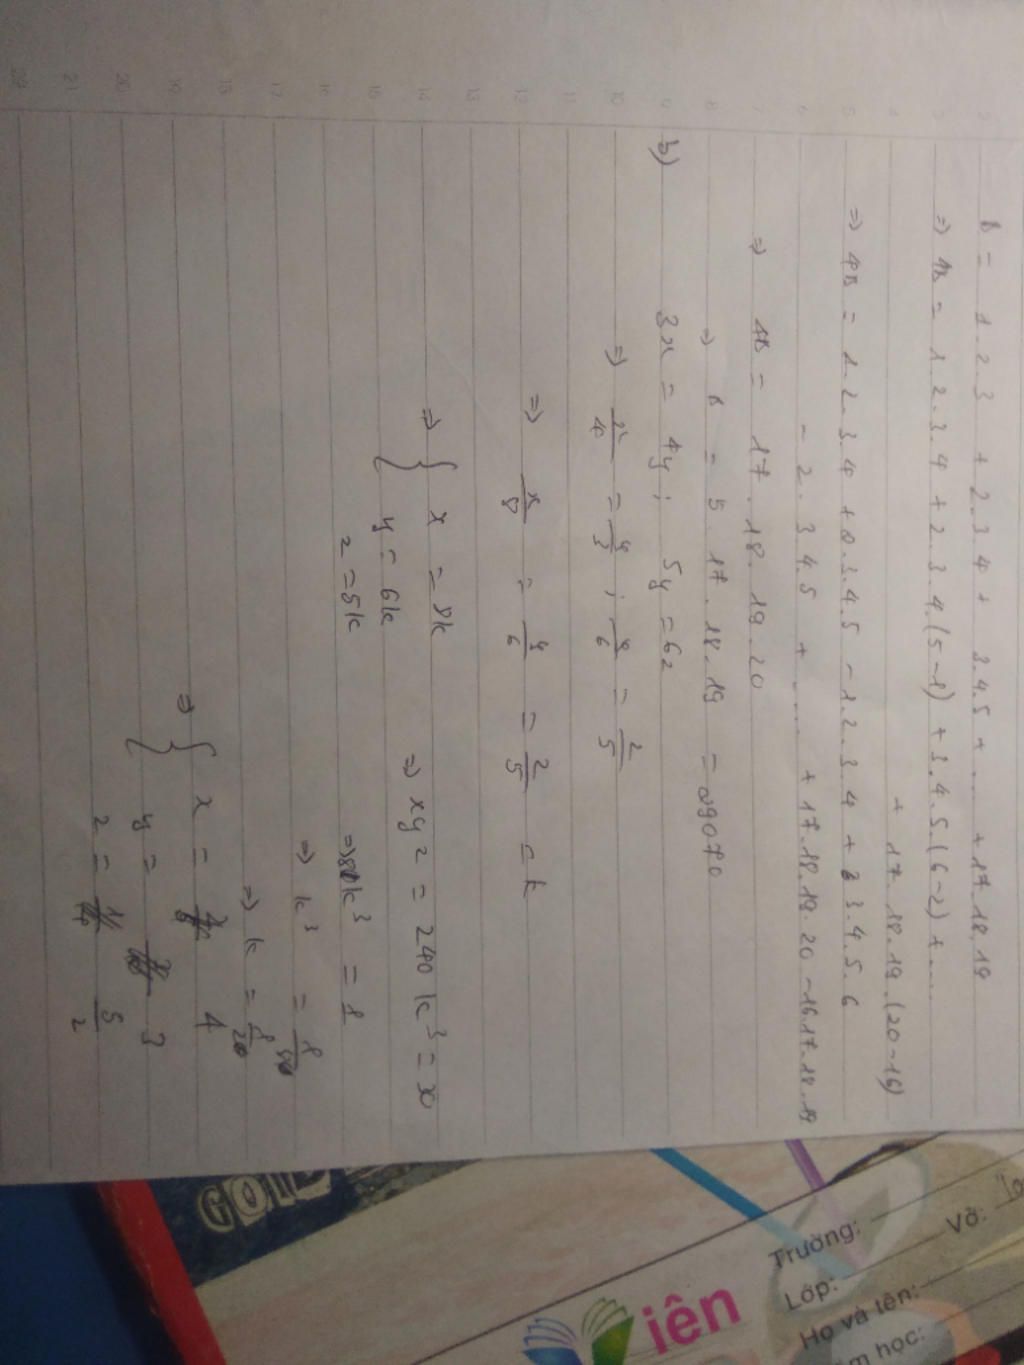 B = 1.2.3 + 2.3.4 + 3.4.5 + .... + 17.18.19
=> 4B = 1.2.3.4 + 2.3.4.(5-1) + 3.4.5.(6-2) + ...
+ 17.18.19.(20-16)
=> 4B = 1.2.3.4 + 2.3.4.5 - 1.2.3.4 + 3.4.5.6
- 2.3.4.5 + .... + 17.18.19.20 - 16.17.18.19
=> 4B = 17.18.19.20
=> B = 5.17.18.19 = 29070
b) 3x = 4y ; 5y = 6z
=> x/4 = y/3 ; y/6 = z/5
=> x/8 = y/6 = z/5 = k
=> { x = 8k
y = 6k
z = 5k
=> xyz = 240k³ = 30
=> 8k³ = 1
=> k³ = 1/8
=> k = 1/2
=> { x = 4
y = 3
z = 5/2
GOI
iên
Trường:
Lớp:
Vở:
Họ và tên:
m học: